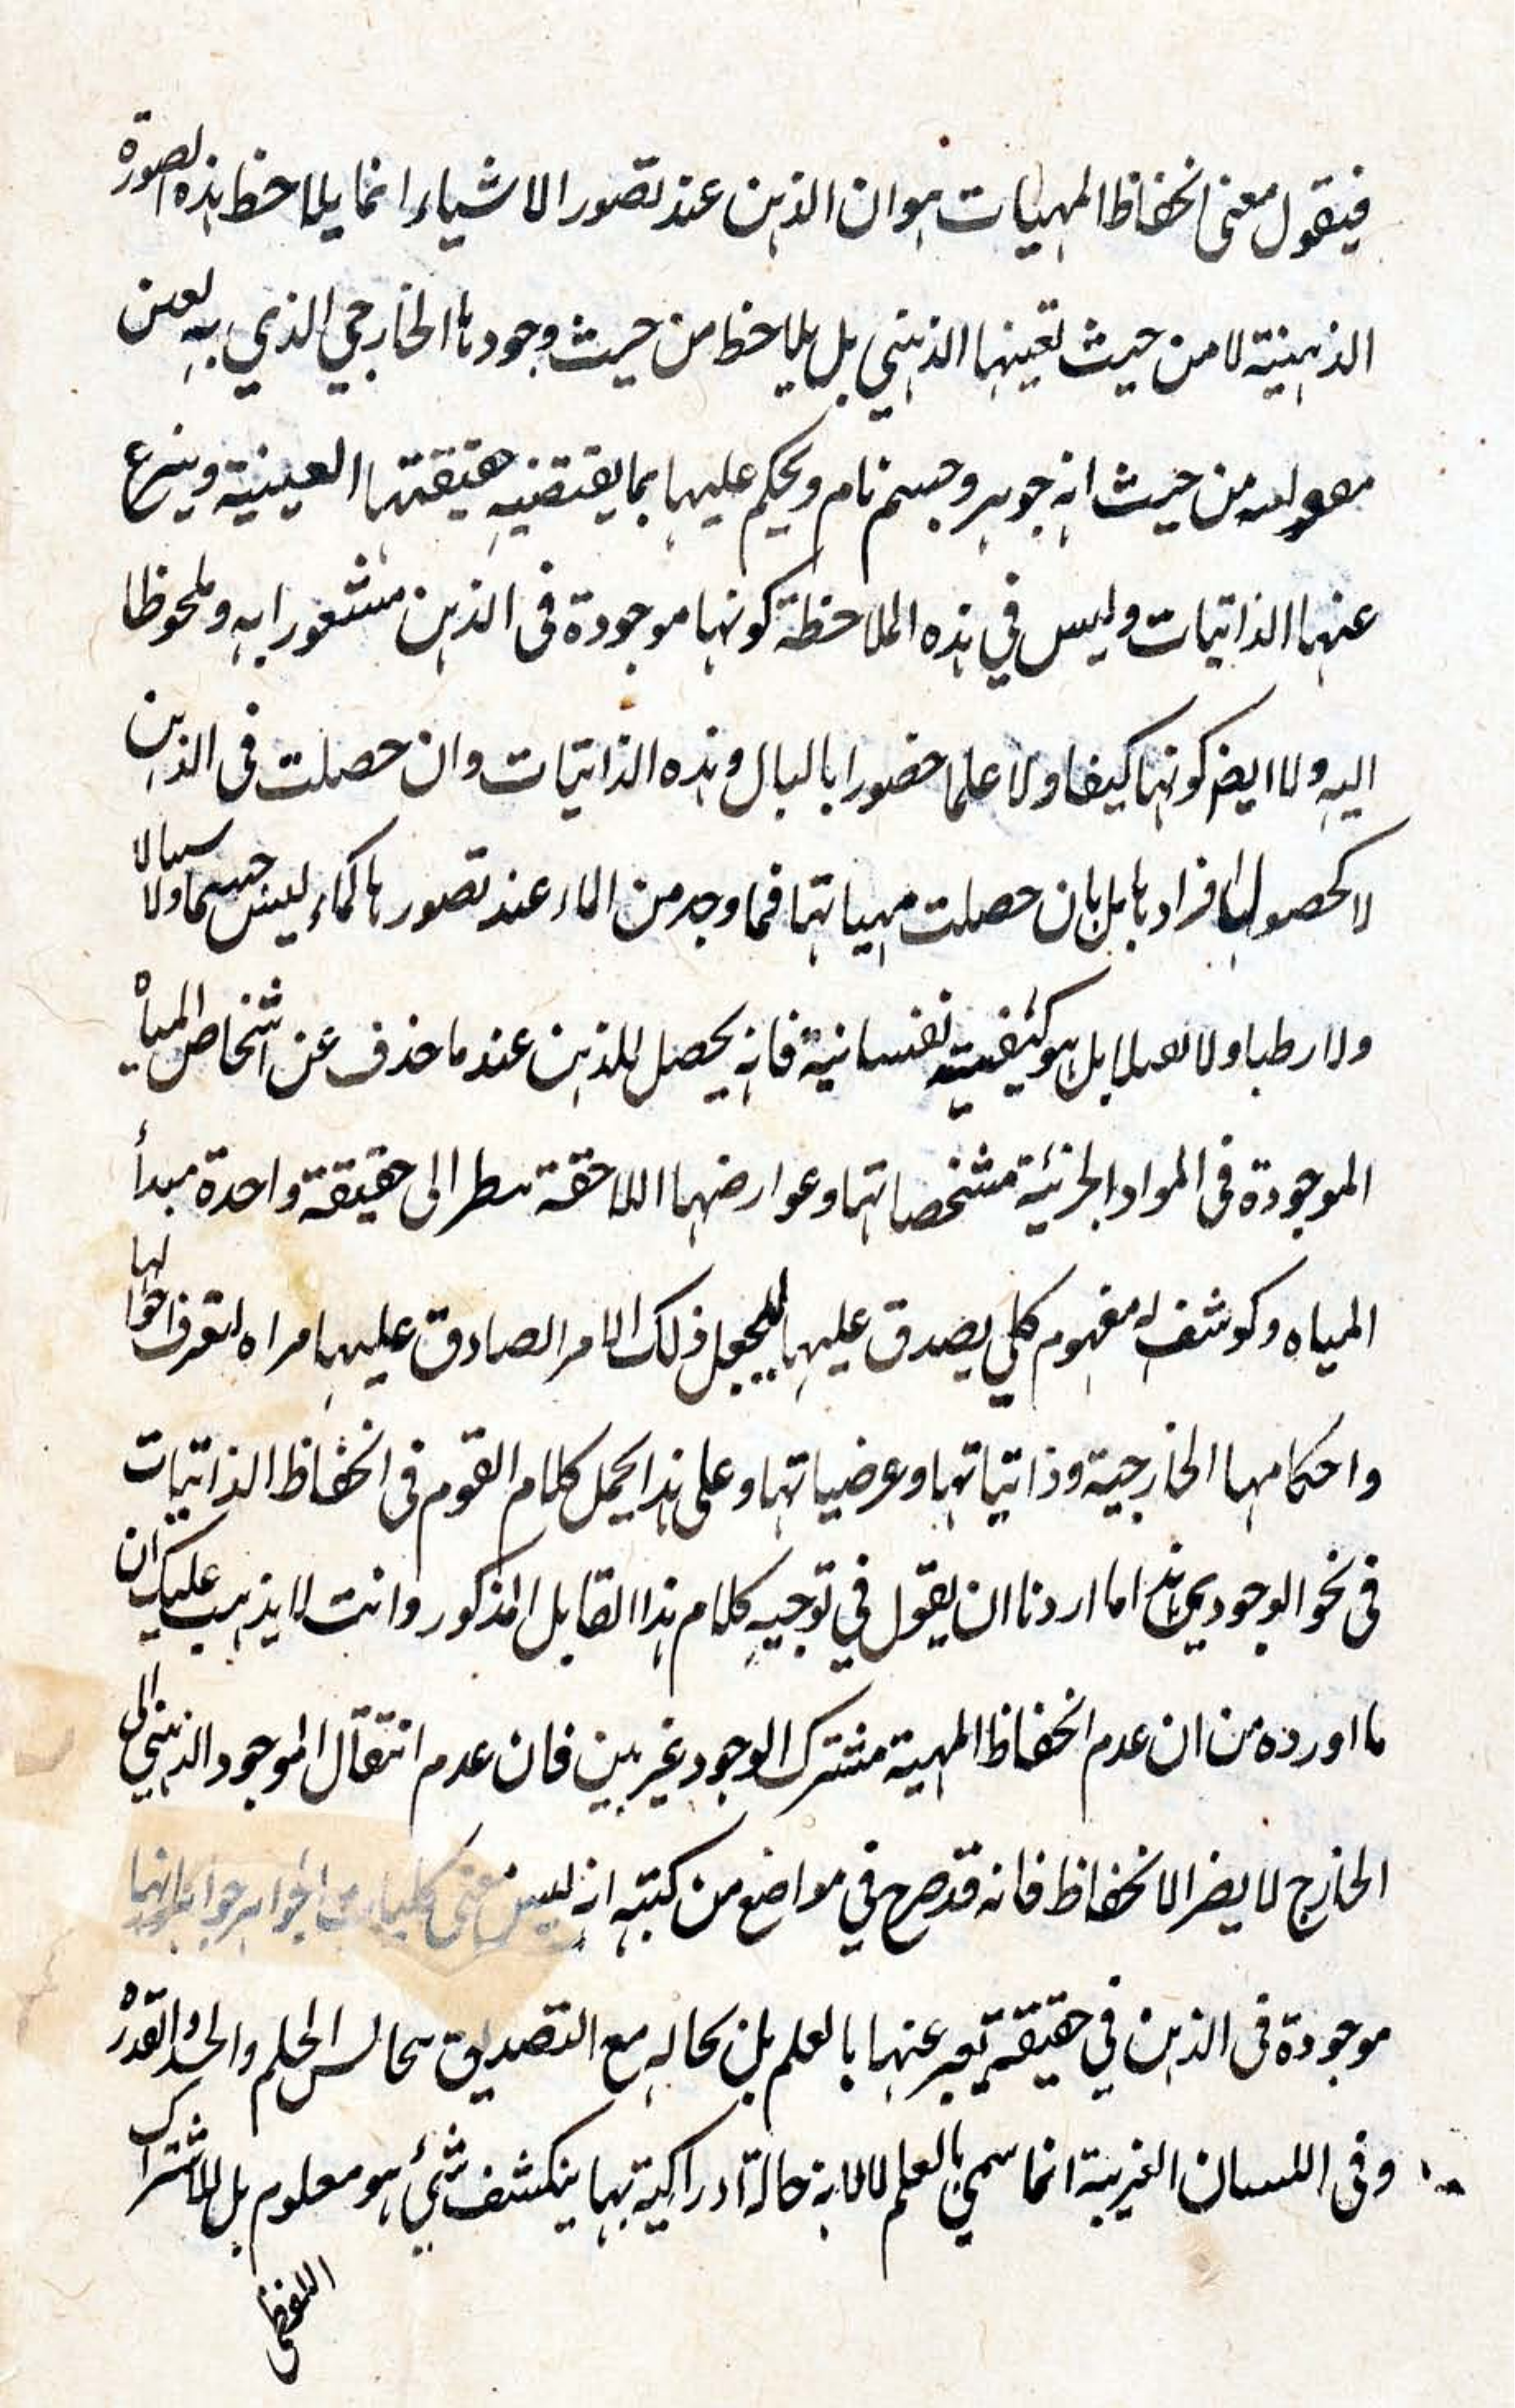 فيقول معنى انحفاظ المهيات هو ان الذهن عند تصور الاشياء انما يلاحظ هذه الصورة
الذهنية لا من حيث تعينها الذهني بل يلاحظ من حيث وجودها الخارجي الذي به لعين
من حيث انه جوهر وجسم نام ويحكم عليها بما يقتضيه حقيقتها العينية وينزع
عنها الذاتيات وليس في هذه الملاحظة كونها موجودة فى الذهن مشعورا به وملحوظا
اليه ولا ايضا كونها كيفا ولا علما حضورا بالبال وهذه الذاتيات وان حصلت فى الذهن
لا كحصول افرادها بل بان حصلت مهياتها فما وجد من الماء عند تصورها كماء ليس جسما ولا سيالا
ولا رطبا ولا بل هو كيفية نفسانية فانه يحصل للذهن عند ما حذف عن اشخاص المياه
الموجودة فى المواد الجزئية مشخصاتها وعوارضها اللاحقة نظر الى حقيقة واحدة مبدأ
المياه وكوشف له مفهوم كلي يصدق عليها ليجعل ذلك الامر الصادق عليها مراه لتعرف احوالها
واحكامها الخارجية وذاتياتها وعرضياتها وعلى هذا يحمل كلام القوم فى انحفاظ الذاتيات
فى نحو الوجودين هذا ما اردنا ان يقول في توجيه كلام هذا القايل المذكور وانت لا يذهب عليك ان
ما اورده من ان عدم انحفاظ المهية مشترك الوجود غير بين فان عدم انتقال الموجود الذهني الى
الخارج لا يضر الانحفاظ فانه قد صرح في مواضع من كتبه انه ليس معنى كليات الجواهر جواهر انها
موجودة فى الذهن في حقيقة يعبر عنها بالعلم بل بحاله مع التصديق الحلم القدر
وفى اللسان الغريبة انما سمي بالعلم لا لانه حالة ادراكية بها ينكشف شئ هو معلوم بل للاشتراك
اللفظى